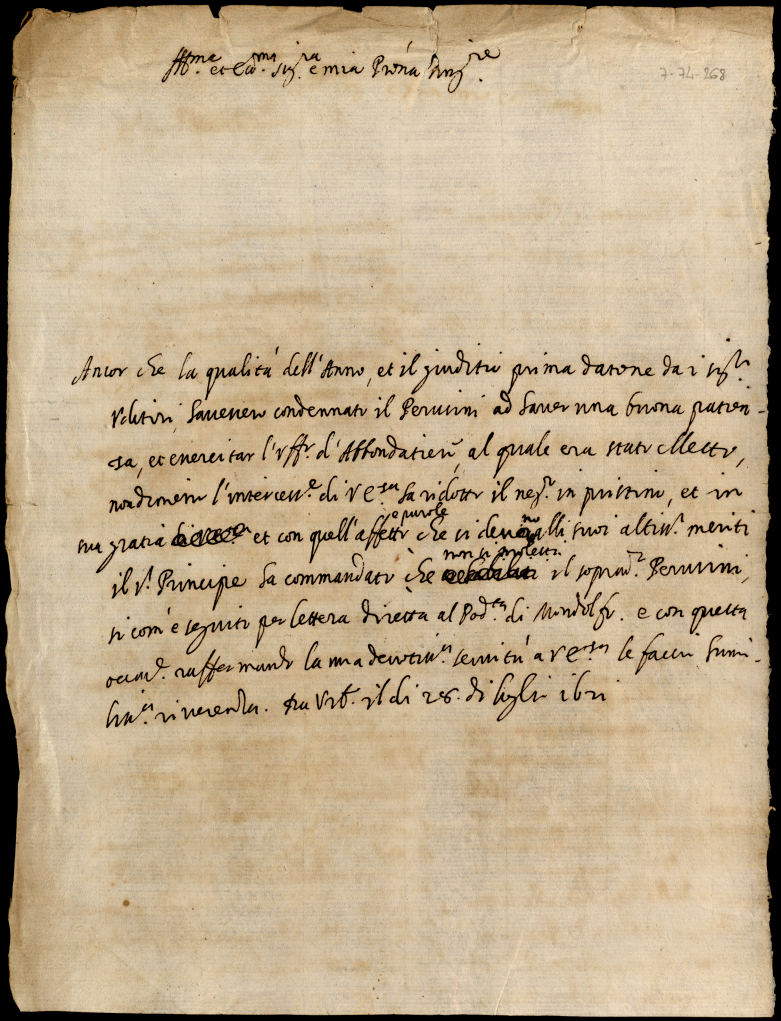 Ill.ma et Ecc.ma Sig.ra e mia Pron̄a Sing.re
7-74-268
Ancor che la qualità dell'Anno, et il giuditio prima datone da i sig.ri
Uditori, havevero condennato il Peruzini ad haver una buona patien-
za, et exercitar l'uff.o d'Abbondatiero, al quale era stato eletto,
nondimeno l'intercess.e di V E.za ha ridotto il neg.o in pristino, et in
sua gratia et con quell'affetto e parole che si devono alli suoi altiss.i meriti
il s.r Principe ha commandato che non si molesti il soprad.o Peruzini,
si com'è seguito per lettera diretta al Pod.tà di Mondolfo. e con questa
occas.e raffermando la mia devotiss.a servitù a V E.za le faccio humi-
liss.a riverenza. Da Urb.o il di 28. di luglio 1611